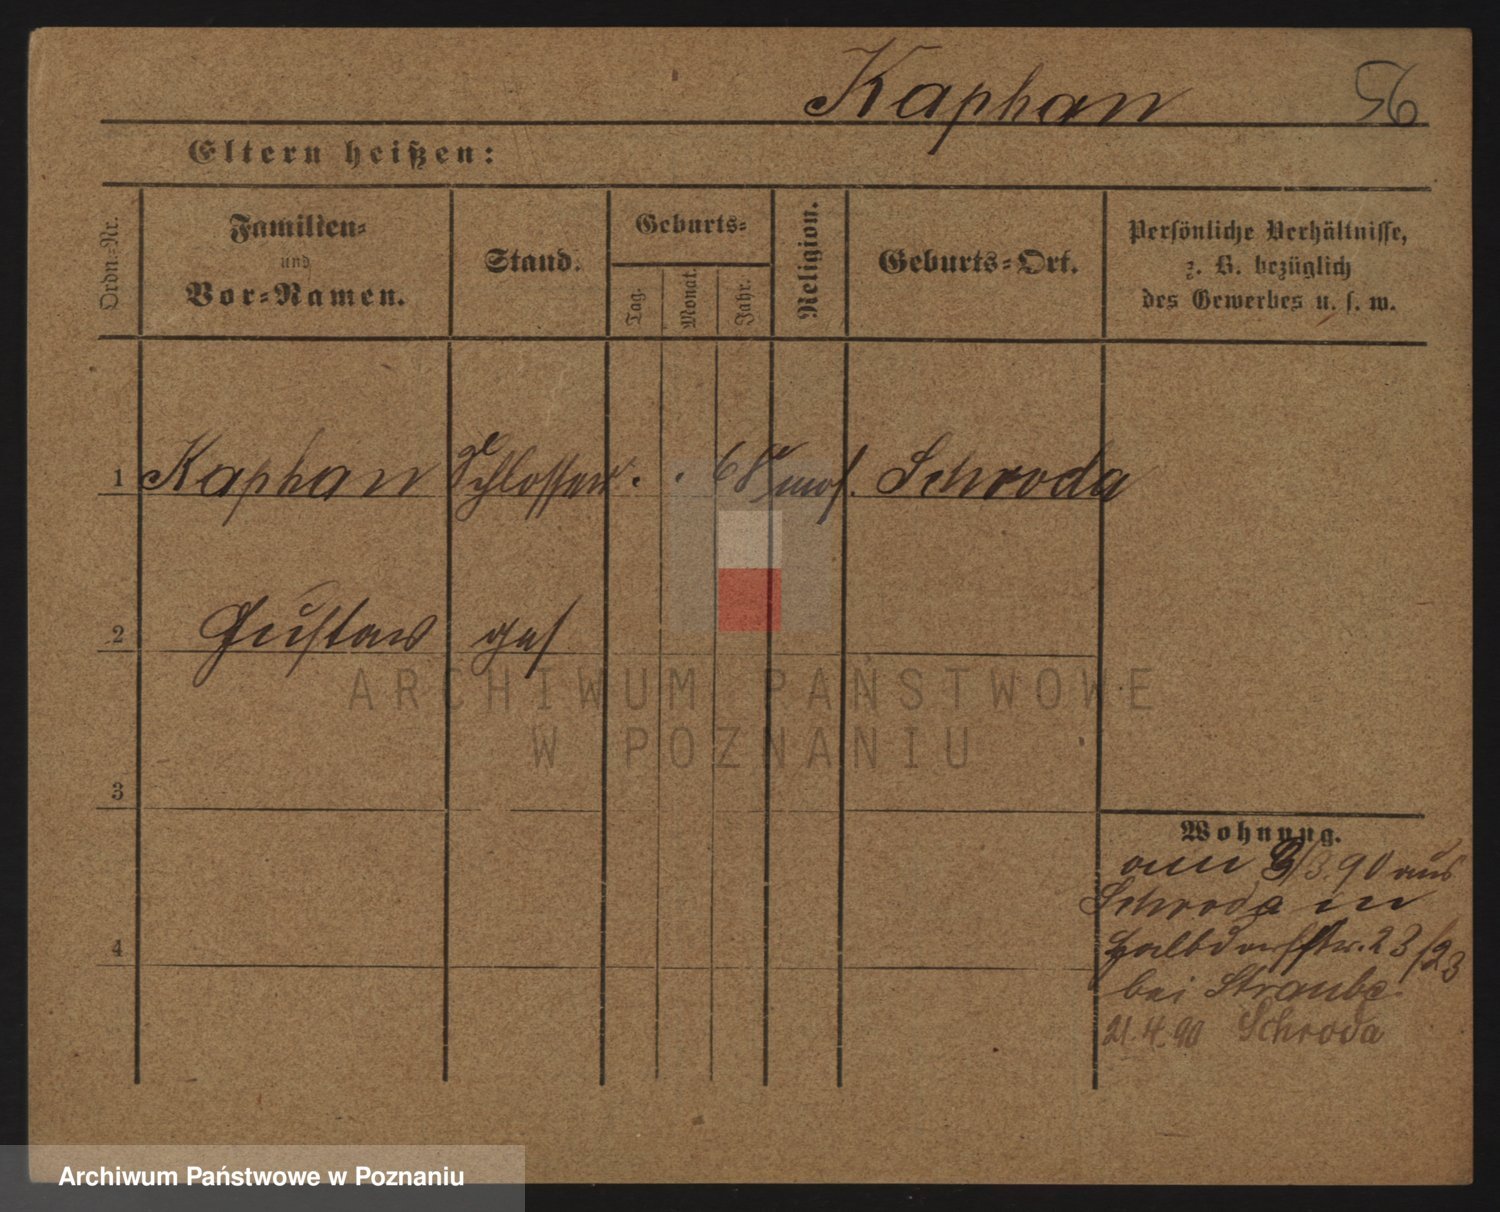 Kaphan 56
Eltern heißen:
Ordn.-Nr.
Familien-
und
Vor-Namen.
Stand.
Geburts-
Tag.
Monat.
Jahr.
Religion.
Geburts-Ort.
Persönliche Verhältnisse,
z. B. bezüglich
des Gewerbes u. s. w.
1 Kaphan Schlosser . . 68 mos. Schroda
2 Gustav ges
3
4
Wohnung.
am 3/3.90 aus
Schroda in
Halbdorfstr. 23/23
bei Straube
21.4.90 Schroda
ARCHIWUM PAŃSTWOWE
W POZNANIU
Archiwum Państwowe w Poznaniu